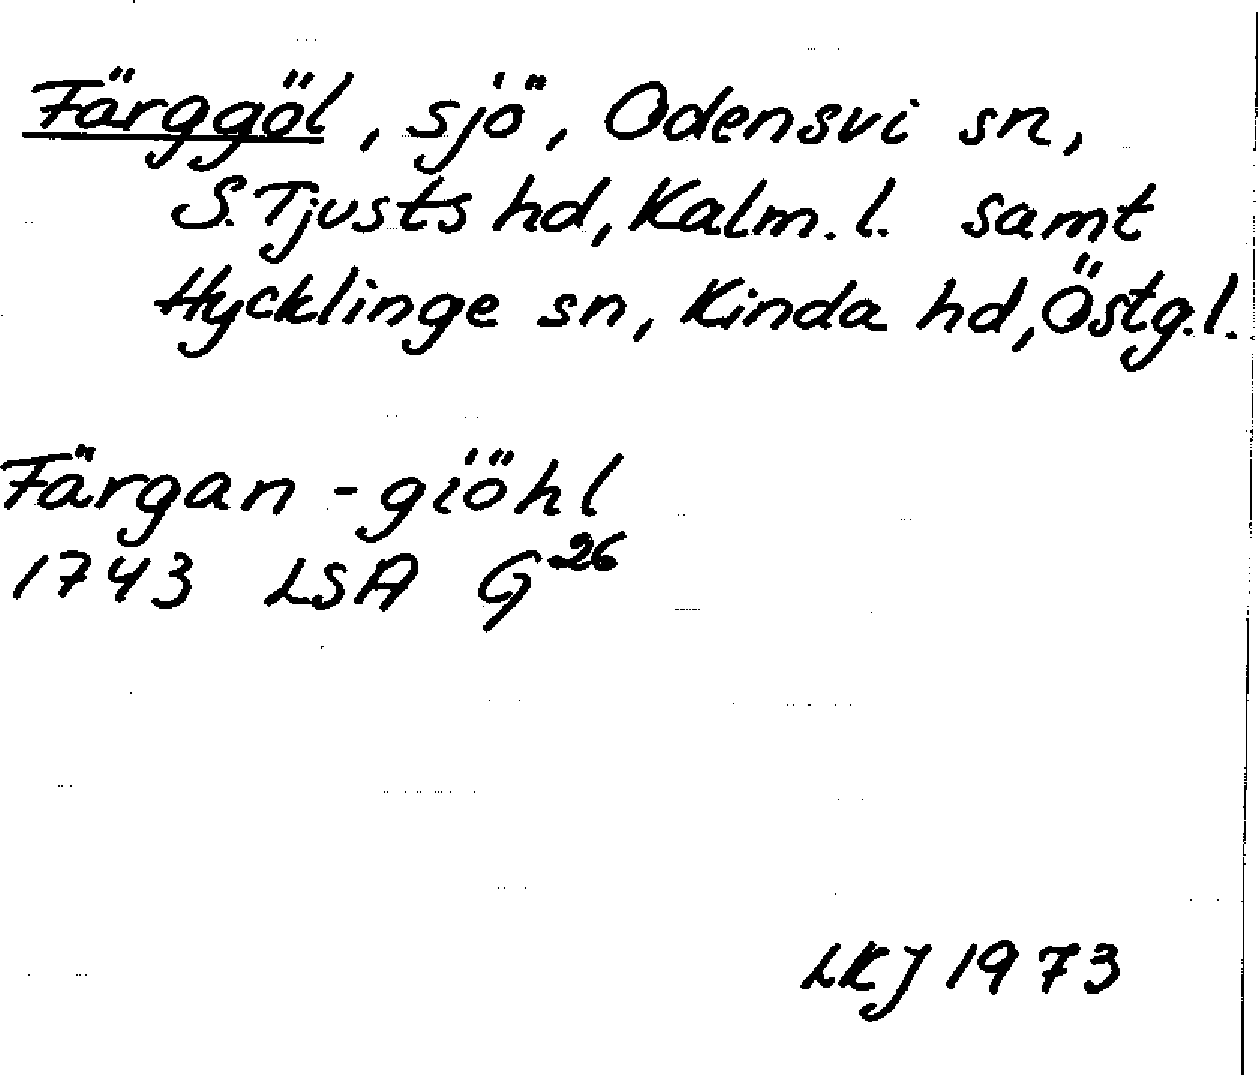 Färggöl, sjö, Odensvi sn,
S. Tjusts hd, Kalm. l. samt
Hycklinge sn, Kinda hd, Östg. l.
Färgan - giöhl
1743 LSA G 26
LKJ 1973